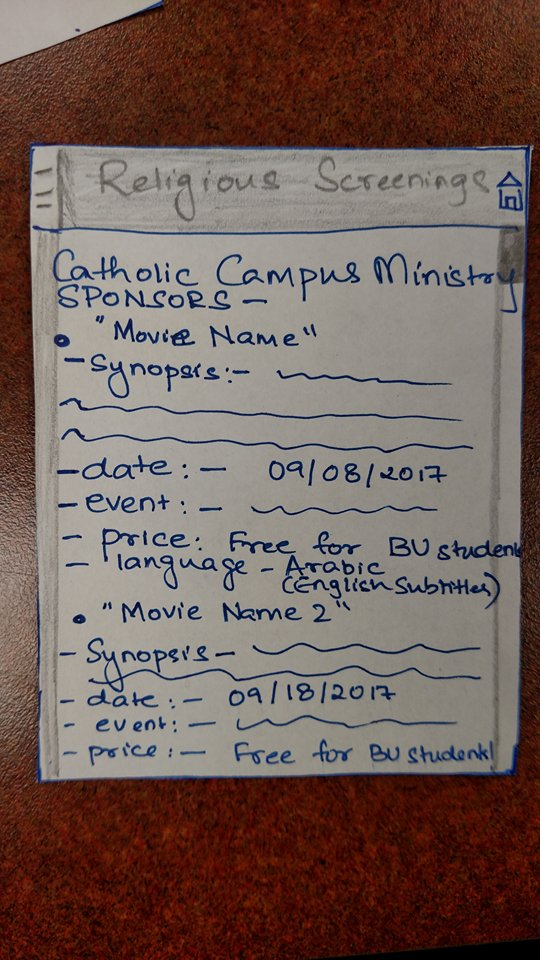 Religious Screenings
Catholic Campus Ministry
SPONSORS -
• "Movie Name"
- Synopsis:-
- date:- 09/08/2017
- event:-
- price: Free for BU student
- language - Arabic
(English Subtitles)
• "Movie Name 2"
- Synopsis -
- date:- 09/18/2017
- event:-
- price:- Free for BU student